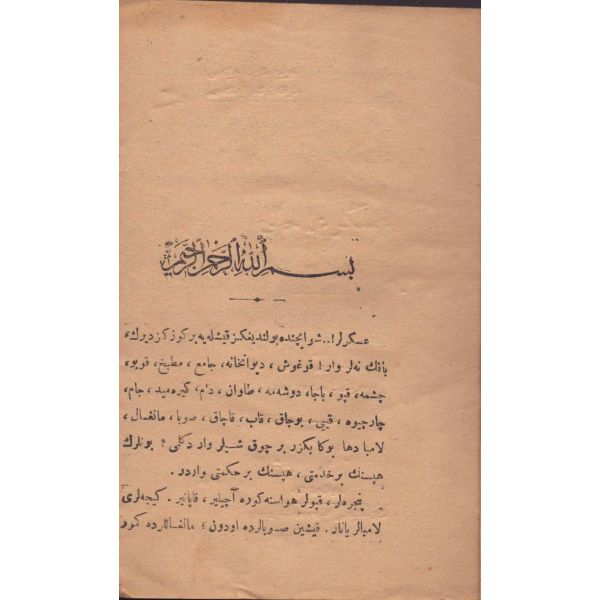 بسم الله الرحمن الرحيم
عسكرلر!.. شو ایچنده بولندیغكز قیشله‌یه بر كوز كزدیرك،
باقك نه‌لر وار! قوغوش، دیوانخانه، جامع، مطبخ، قویو،
چشمه، قپو، باجا، دوشه‌مه، طاوان، دام، كیره‌مید، جام،
چارچیوه، قبی، بوجاق، قاب، قاچاق، صوبا، مانغال،
لامبا دها بوكا بكزر بر چوق شیلر وار دكلی؟ بونلرك
هپسنك بر خدمتی، هپسنك بر حكمتی واردر.
پنجره‌لر، قپولر هواسنه كوره آچیلیر، قاپانیر. كیجه‌لری
لامبالر یانار. قیشین صوبالرده اودون؛ مانغاللرده كور